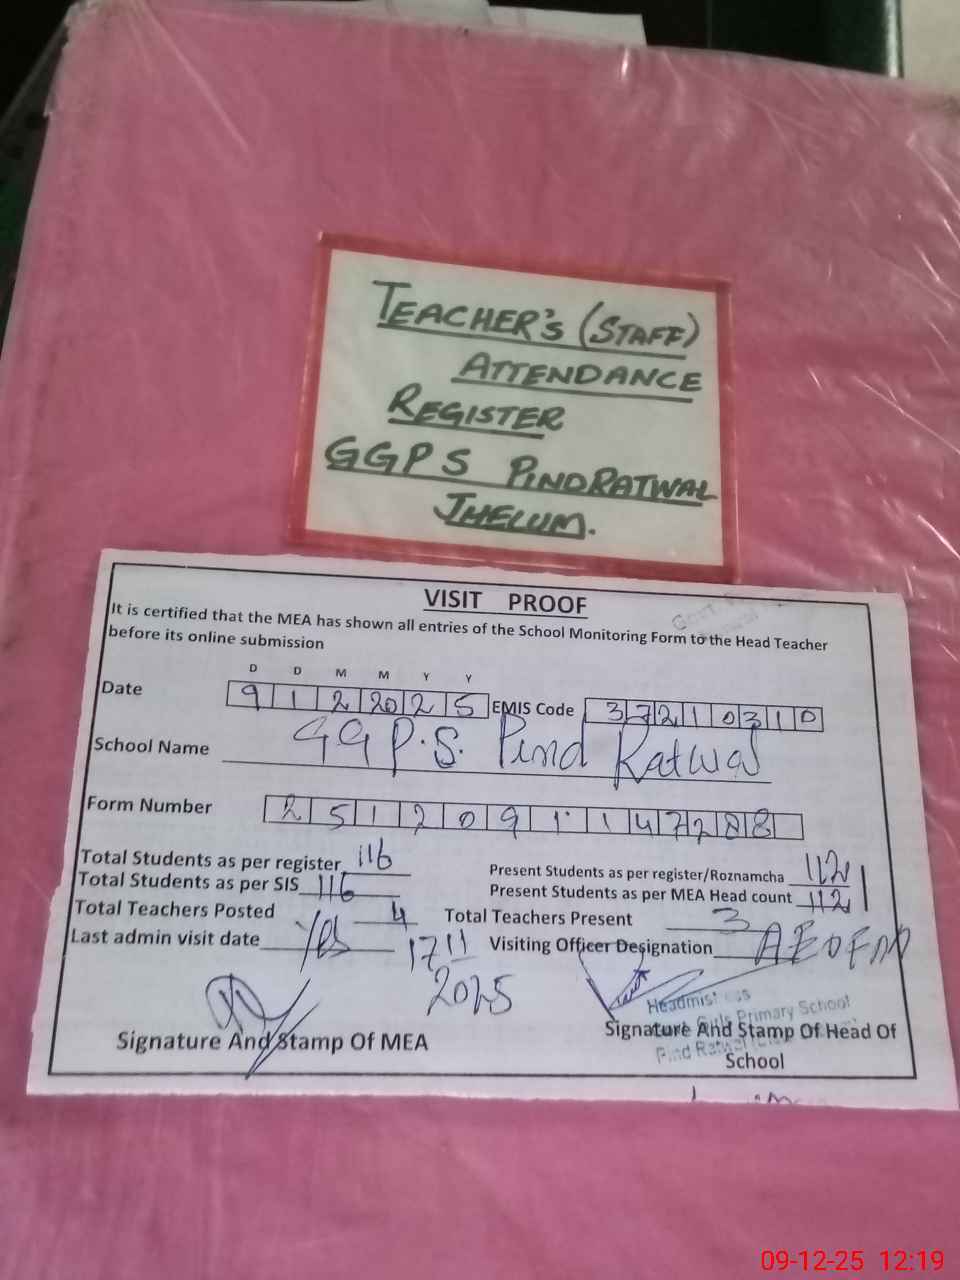 TEACHER'S (STAFF)
ATTENDANCE
REGISTER
GGPS PINDRATWAL
JHELUM.
VISIT PROOF
It is certified that the MEA has shown all entries of the School Monitoring Form to the Head Teacher
before its online submission
D D M M Y Y
Date 9 1 2 20 2 5 EMIS Code 3 7 2 1 0 3 1 0
School Name GGP.S. Pind Ratwal
Form Number 2 5 1 2 0 9 1 1 4 7 2 8 8
Total Students as per register 116
Present Students as per register/Roznamcha 112
Total Students as per SIS 116
Present Students as per MEA Head count 112
Total Teachers Posted 4 Total Teachers Present 3
Last admin visit date Yes 17 11 2025 Visiting Officer Designation AEO
Headmistress
Girls Primary School
Pind
Signature And Stamp Of MEA
Signature And Stamp Of Head Of
School
09-12-25 12:19